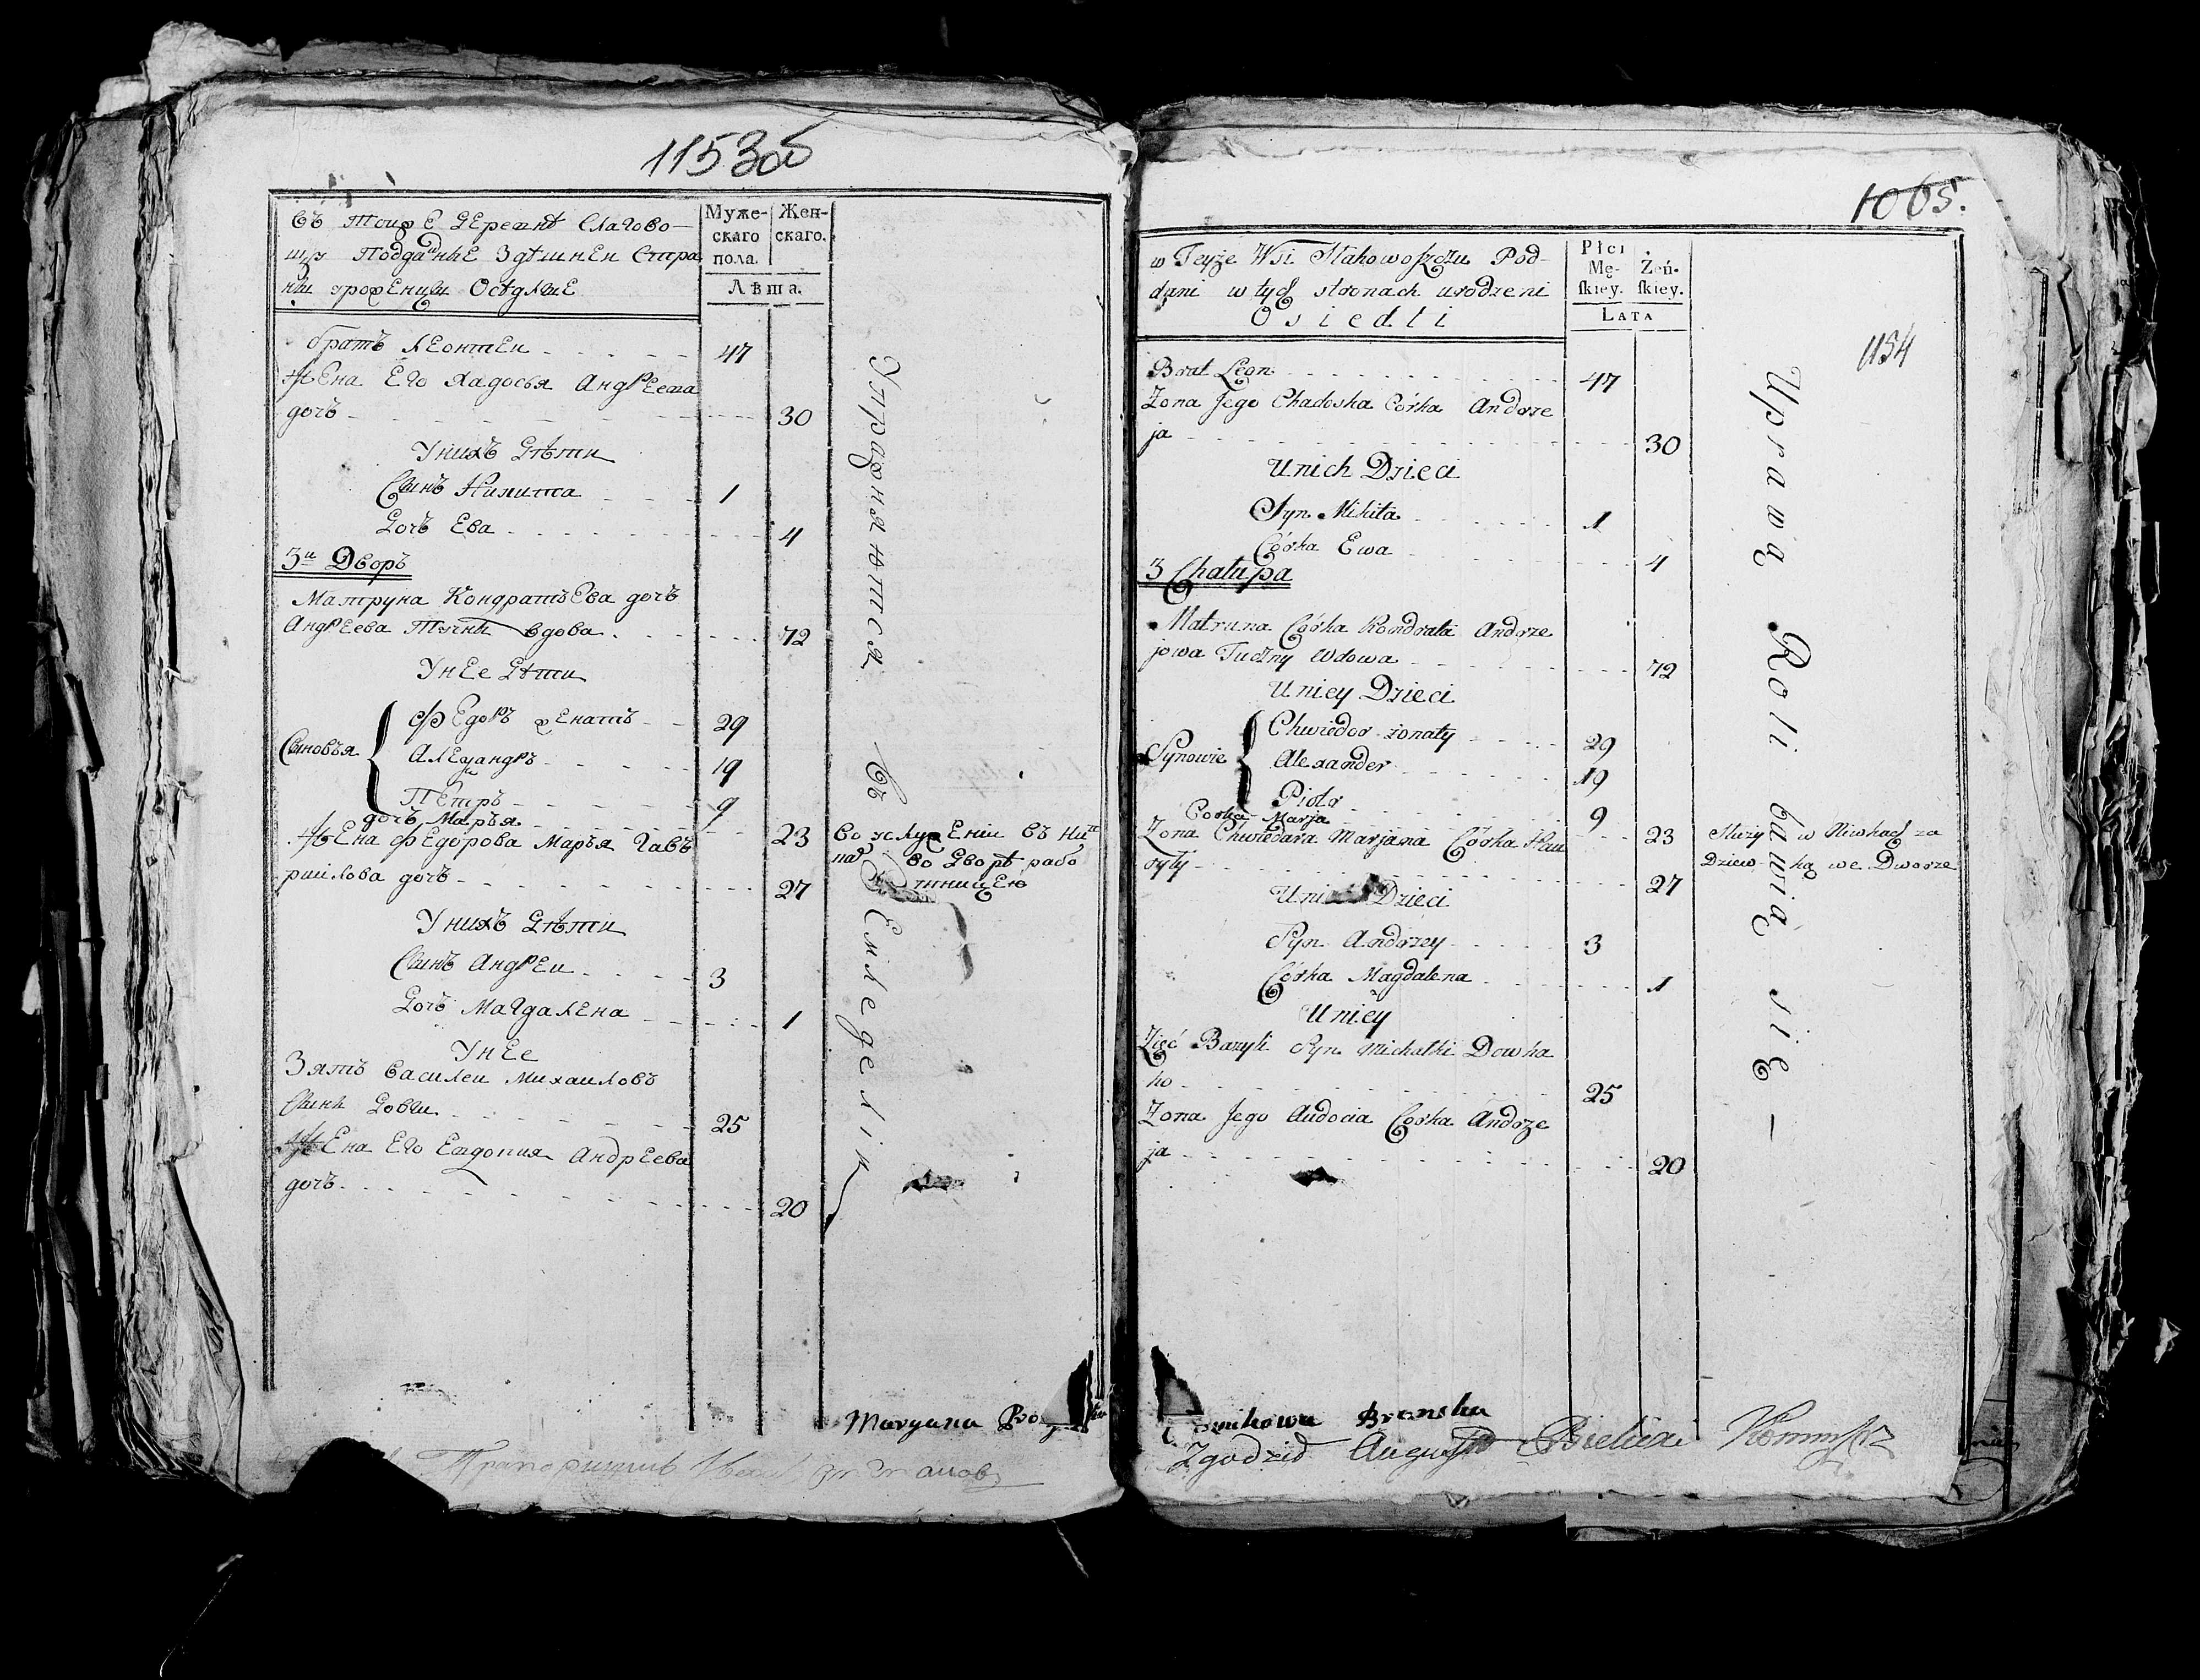 1153 об
Въ Тойже Деревнѣ Слагово-
щу Подданые Здѣшнеи Стра
ны урожденцы Осѣдлые
Муже-
скаго
пола.
Жен-
скаго.
Лѣта.
братъ Леонтеи 47
Жена Его Хадосья Андреева
дочъ 30
Унихъ Дѣти
Сынъ Никита 1
Дочъ Ева 4
3й Дворъ
Матруна Кондратьева дочъ
Андреева Тучны вдова 72
Унее Дѣти
Сыновья
Федоръ женатъ 29
Александръ 19
Петръ 9
дочъ Марья 23
Жена Федорова Марья Гавъ
рилова дочъ 27
Унихъ Дѣти
Сынъ Андреи 3
Дочъ Магдалена 1
Унее
Зять Василеи Михаиловъ
сынъ Довги 25
Жена Его Евдокия Андреева
дочъ 20
Упражняются Въ Земледелiи
во услужении въ
во Дворѣ рабо
тницею
Maryana
1065.
1154
w Teyże Wsi Stahowoszczu Pod-
dani w tych stronach urodzeni
Osiedli
Płci
Mę-
skiey.
Żeń-
skiey.
LATA
Brat Leon 47
Zona Jego Chadoska Córka Andrze
ja 30
Unich Dzieci
Syn Mikita 1
Córka Ewa 4
3 Chałupa
Matruna Córka Kondrata Andrze
jowa Tuczny Wdowa 72
Uniey Dzieci
Synowie
Chwiedor żonaty 29
Alexander 19
Piotr 9
Corka Marja 23
Zona Chwiedara Marjana Córka Hau
ryły 27
Unich Dzieci
Syn Andrzey 3
Córka Magdalena 1
Uniey
Zięć Bazyli Syn Michałki Dowha
ho 25
Zona Jego Audocia Corka Andrze
ja 20
Uprawą Roli bawią się
Służy w Niwkach za
Dziewką we Dworze
Bronska
Zgodził August Bielica Kommsz